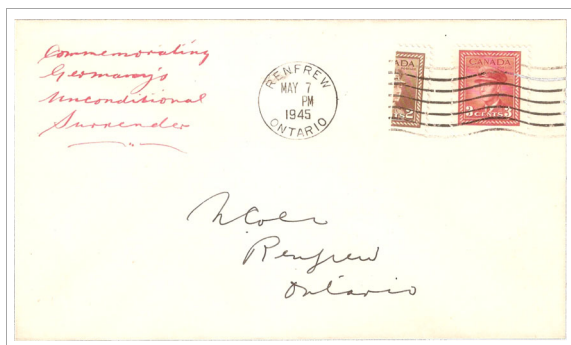 Commemorating
Germany's
Unconditional
Surrender
RENFREW
MAY 7
PM
1945
ONTARIO
CANADA
CENTS 2
CANADA
3 CENTS 3
Renfrew
Ontario